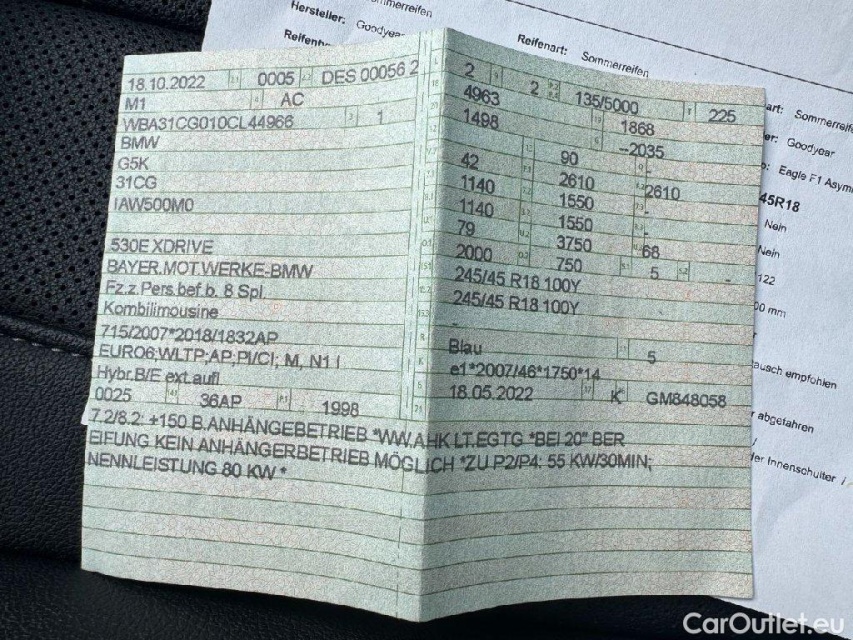 Hersteller: Goodyear
Sommerreifen
Reifenart: Sommerreifen
18.10.2022 0005 DES 00056 2
M1 AC
WBA31CG010CL44966 1
BMW
G5K
31CG
IAW500M0
530E XDRIVE
BAYER.MOT.WERKE-BMW
Fz.z.Pers.bef.b. 8 Spl.
Kombilimousine
715/2007*2018/1832AP
EURO6;WLTP;AP;PI/CI; M, N1 I
Hybr.B/E ext.aufl
0025 36AP 1998
2 2 135/5000 225
4963 1868
1498 --2035
42 90 -
1140 2610 2610
1140 1550 -
79 1550 -
2000 3750 68
750 5 -
245/45 R18 100Y
245/45 R18 100Y
-
Blau 5
e1*2007/46*1750*14
18.05.2022 K GM848058
7.2/8.2: +150 B.ANHÄNGEBETRIEB *WW.AHK LT.EGTG *BEI 20" BER
EIFUNG KEIN ANHÄNGERBETRIEB MÖGLICH *ZU P2/P4: 55 KW/30MIN;
NENNLEISTUNG 80 KW *
art: Sommerreife
er: Goodyear
Eagle F1 Asym
45R18
Nein
Nein
122
00 mm
ausch empfohlen
abgefahren
der Innenschulter /
CarOutlet.eu